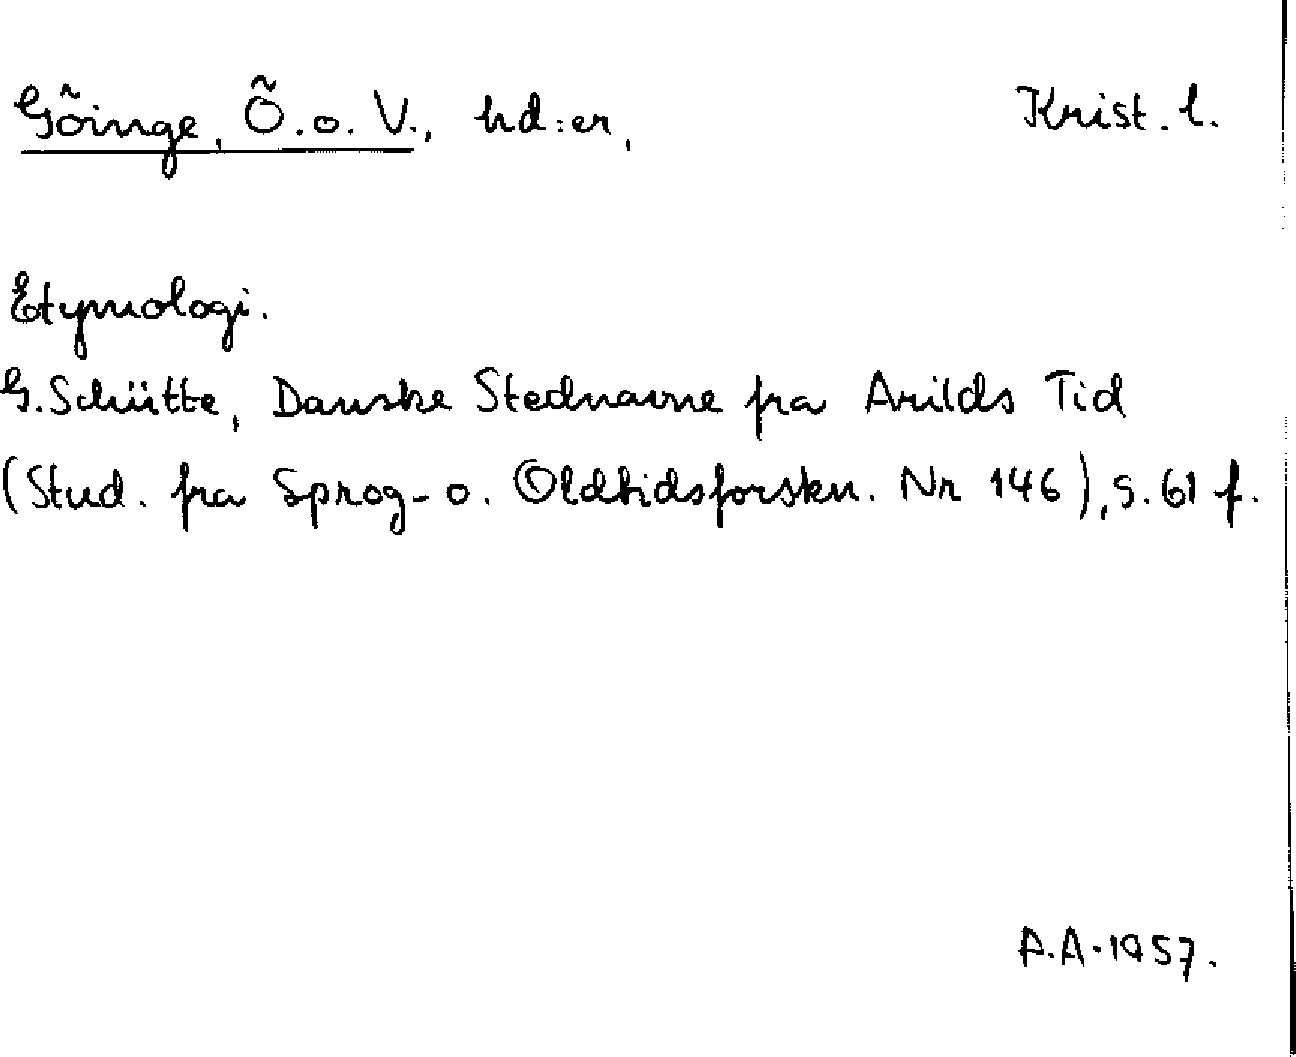 Göinge, Ö.o. V., hd:er,
Krist. l.
Etymologi.
G. Schütte, Danske Stednavne fra Arilds Tid
(Stud. fra Sprog- o. Oldtidsforskn. Nr 146), s. 61 f.
A.A. 1957.